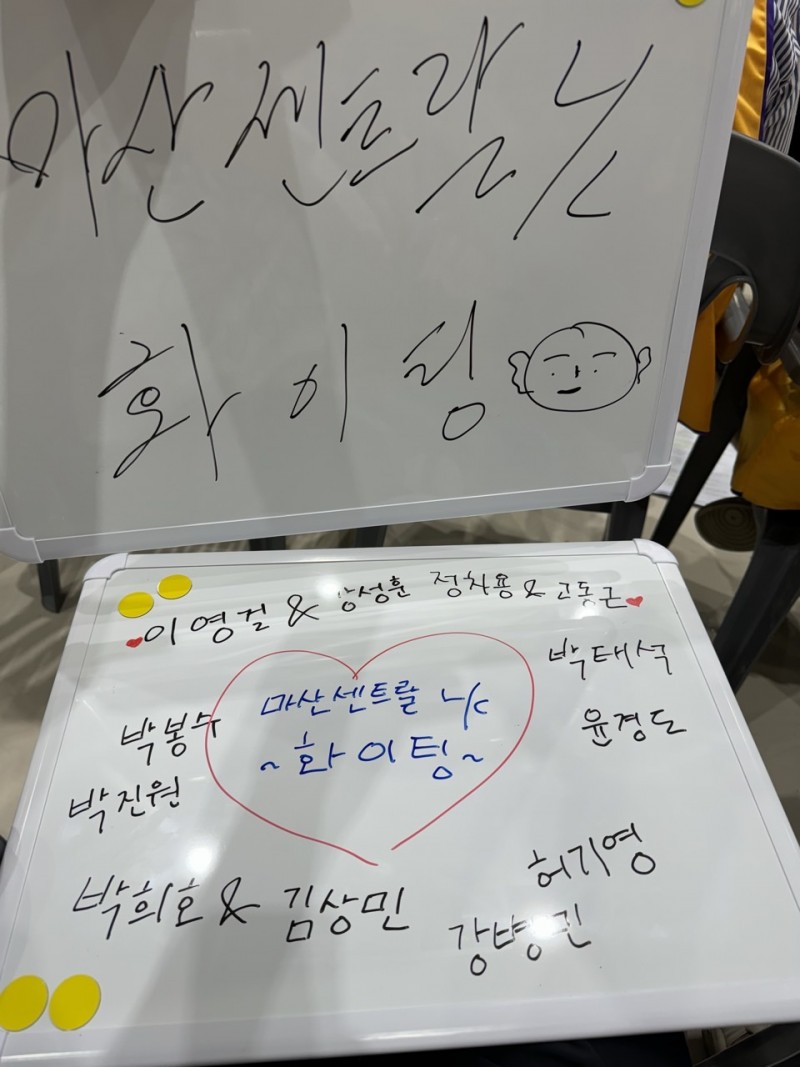 마산센트랄 L/C
화이팅
이영걸 & 강성훈 정차용 & 고동근
박태석
마산센트랄 L/C
~화이팅~
박봉수
윤경도
박진원
허기영
박희호 & 김상민
강병진